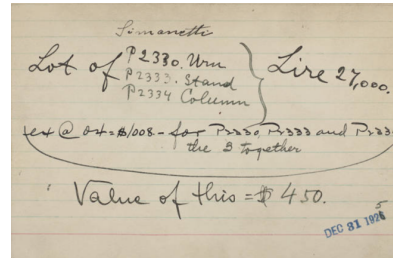 Simonetti
Lot of P2330. Urn
P2333. Stand
P2334 Column
Lire 27,000.
@ 04 = $1008 - for P2330, P2333 and P233
the 3 together
Value of this = $ 450.
DEC 31 1925